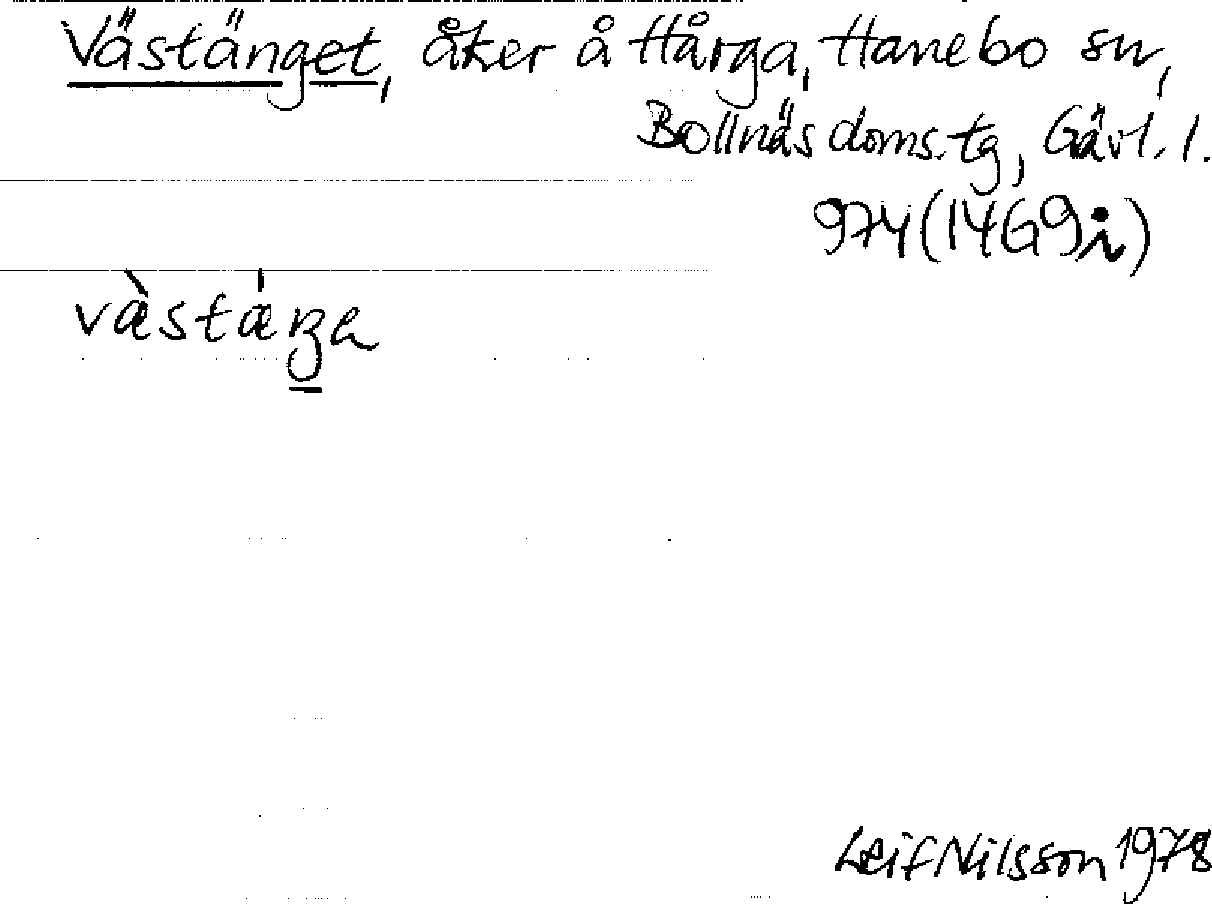 Västänget, åker å Hårga, Hanebo sn,
Bollnäs doms.tg, Gävl. l.
974 (14G9i)
væ̀stǽŋa
Leif Nilsson 1978